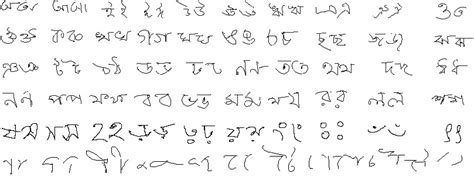 অঅ আআ ইই ঈঈ উউ ঊঊ ঋঋ এএ ঐঐ ওও
ঔঔ কক খখ গগ ঘঘ ঙঙ চচ ছছ জজ ঝঝ
ঞঞ টট ঠঠ ডড ঢঢ ণণ তত থথ দদ ধধ
নন পপ ফফ বব ভভ মম যয রর লল শশ
ষষ সস হহ ড়ড় ঢ়ঢ় য়য়